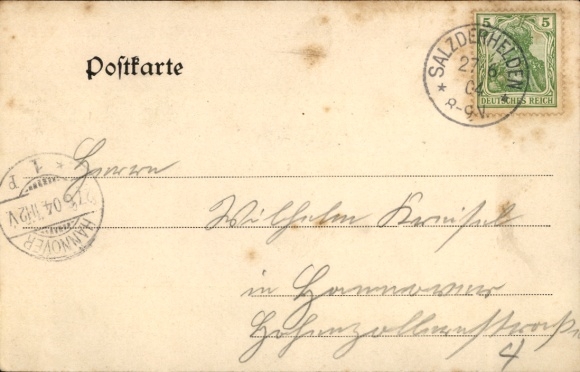 Postkarte
5 5
SALZDERHELDEN
27 6
04
8-9N
DEUTSCHES REICH
* 1. P
04 11-12V
HANNOVER
Herrn
Wilhelm
in Hannover
Hohenzollernstraße
4